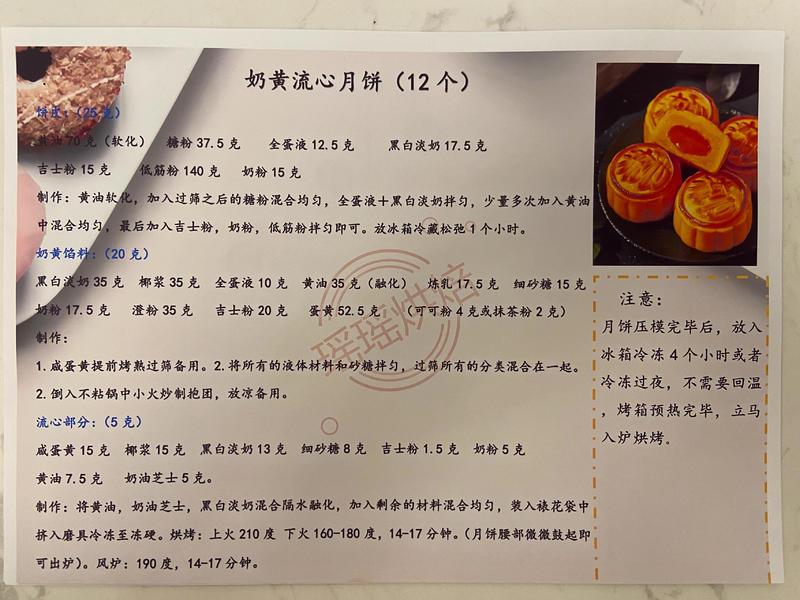 奶黄流心月饼（12 个）
饼皮：（25 克）
黄油 70 克（软化） 糖粉 37.5 克 全蛋液 12.5 克 黑白淡奶 17.5 克
吉士粉 15 克 低筋粉 140 克 奶粉 15 克
制作：黄油软化，加入过筛之后的糖粉混合均匀，全蛋液＋黑白淡奶拌匀，少量多次加入黄油
中混合均匀，最后加入吉士粉，奶粉，低筋粉拌匀即可。放冰箱冷藏松弛 1 个小时。
奶黄馅料：（20 克）
黑白淡奶 35 克 椰浆 35 克 全蛋液 10 克 黄油 35 克（融化） 炼乳 17.5 克 细砂糖 15 克
奶粉 17.5 克 澄粉 35 克 吉士粉 20 克 蛋黄 52.5 克 （可可粉 4 克或抹茶粉 2 克）
制作：
1.咸蛋黄提前烤熟过筛备用。2.将所有的液体材料和砂糖拌匀，过筛所有的分类混合在一起。
2.倒入不粘锅中小火炒制抱团，放凉备用。
流心部分：（5 克）
咸蛋黄 15 克 椰浆 15 克 黑白淡奶 13 克 细砂糖 8 克 吉士粉 1.5 克 奶粉 5 克
黄油 7.5 克 奶油芝士 5 克。
制作：将黄油，奶油芝士，黑白淡奶混合隔水融化，加入剩余的材料混合均匀，装入裱花袋中
挤入磨具冷冻至冻硬。烘烤：上火 210 度 下火 160-180 度，14-17 分钟。（月饼腰部微微鼓起即
可出炉）。风炉：190 度，14-17 分钟。
瑶瑶烘焙
注意：
月饼压模完毕后，放入
冰箱冷冻 4 个小时或者
冷冻过夜，不需要回温
，烤箱预热完毕，立马
入炉烘烤。